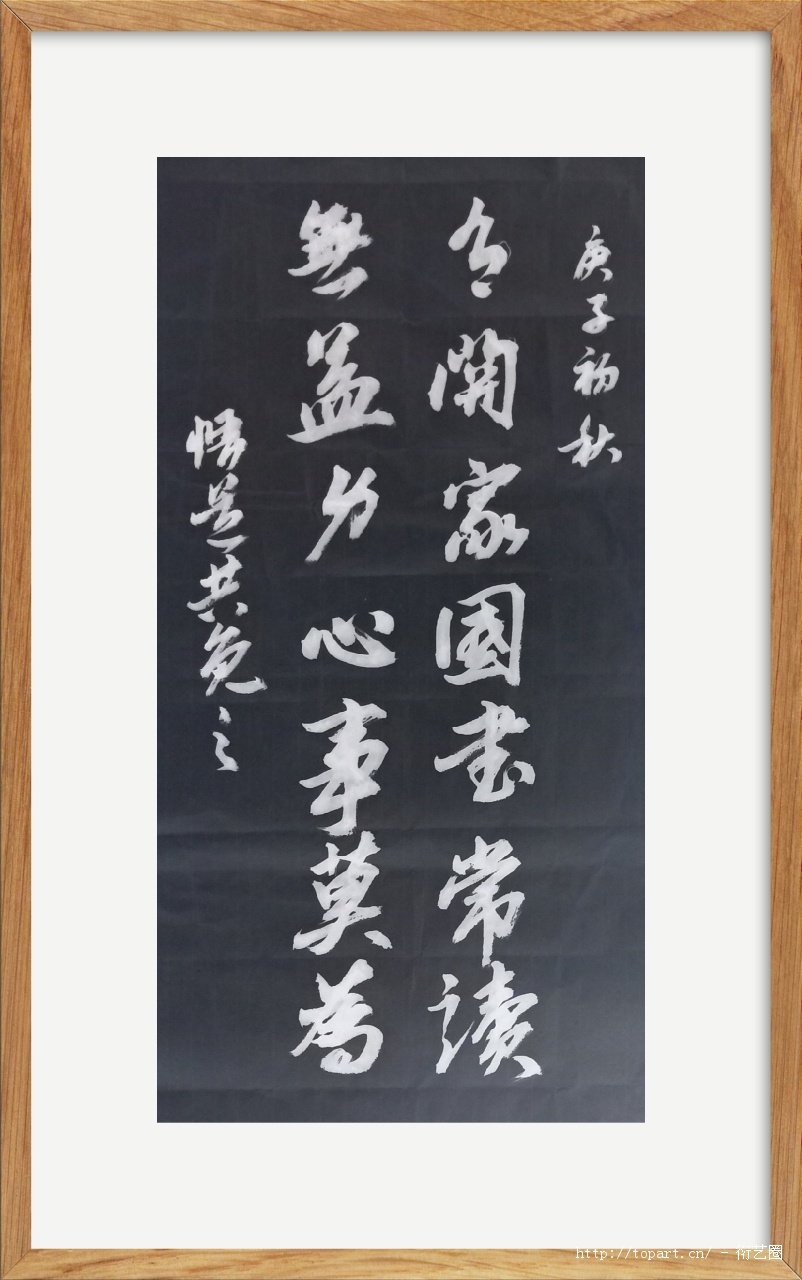 庚子初秋
有關家國書常讀
無益身心事莫為
悟是共勉之
http://topart.cn/ - 衍艺圈